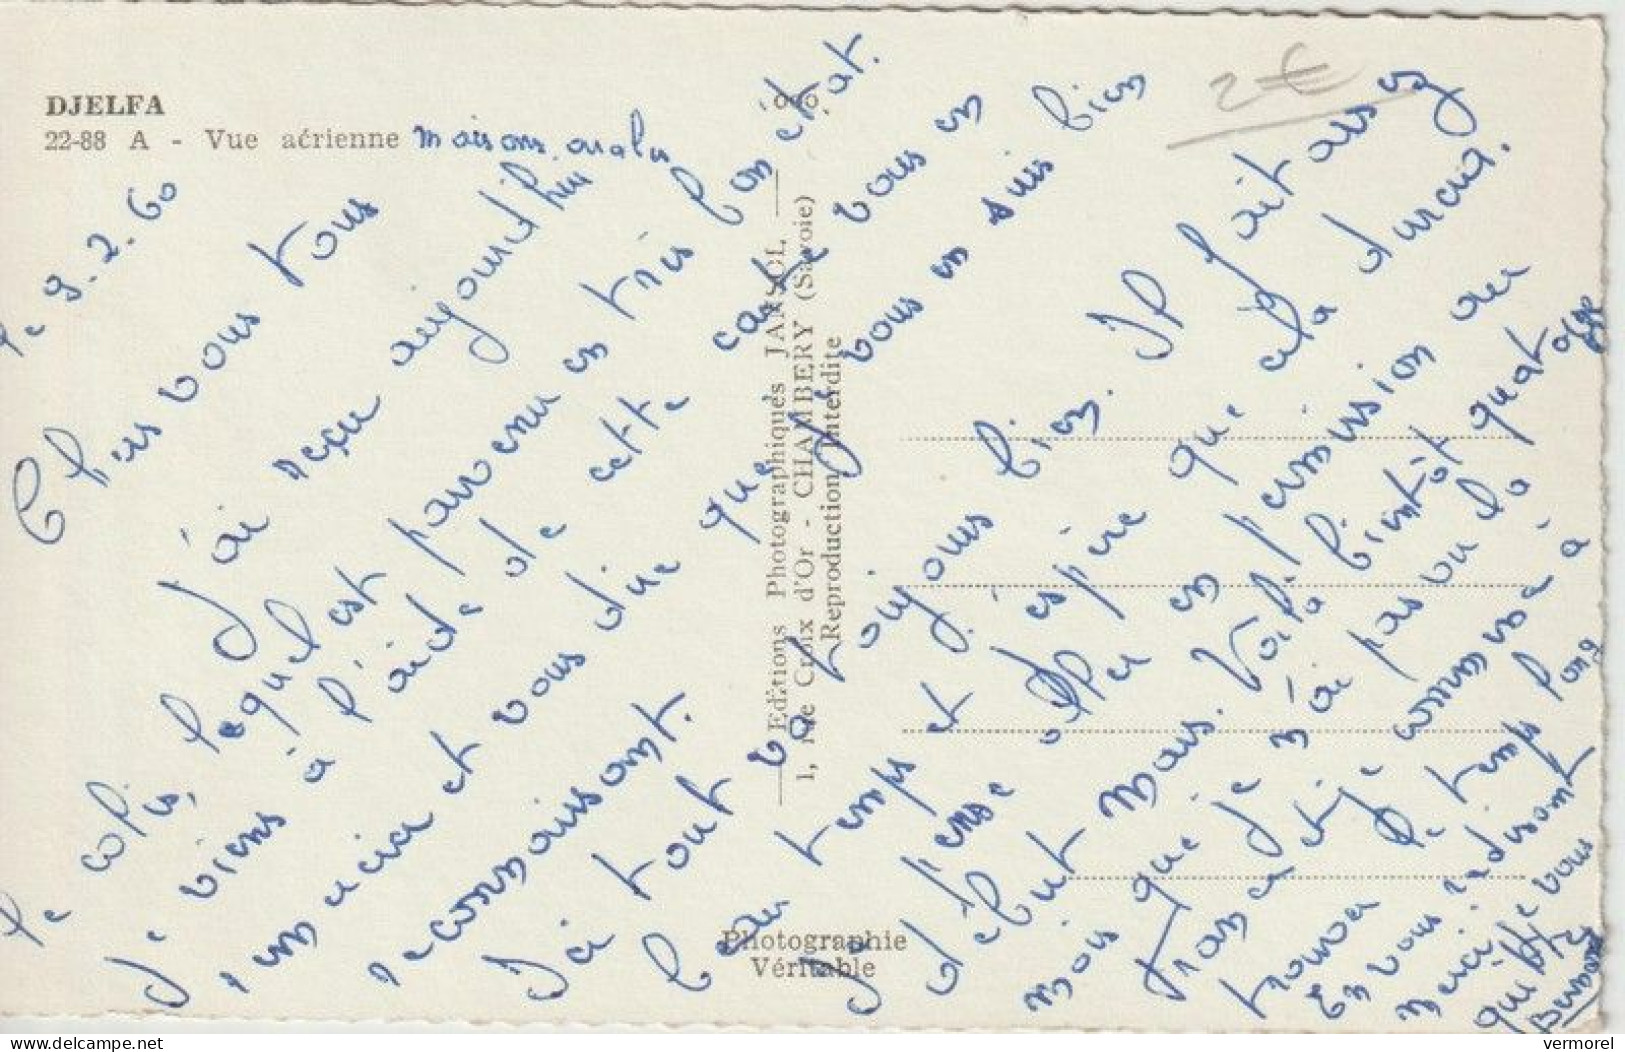 DJELFA
22-88 A - Vue aérienne maisons arabes
le 9.2.60
Chers vous tous
J'ai reçu aujourd'hui
le colis, lequel est parvenu en très bon état.
Je viens à l'aide de cette carte vous en
remercier et vous dire que je vous en suis bien
reconnaissant.
Ici tout va toujours bien. Il fait assez
beau temps et j'espère que cela durera.
Je pense aller en permission au
début mars. Voilà bientôt quatre
mois que je n'ai pas vu la
France et je commence à
trouver le temps long
En vous redisant
merci je vous
quitte
Bernard
2€
Editions Photographiques JANSOL
1, Rue Croix d'Or - CHAMBERY (Savoie)
Reproduction Interdite
Photographie
Véritable
delcampe.net
vermorel